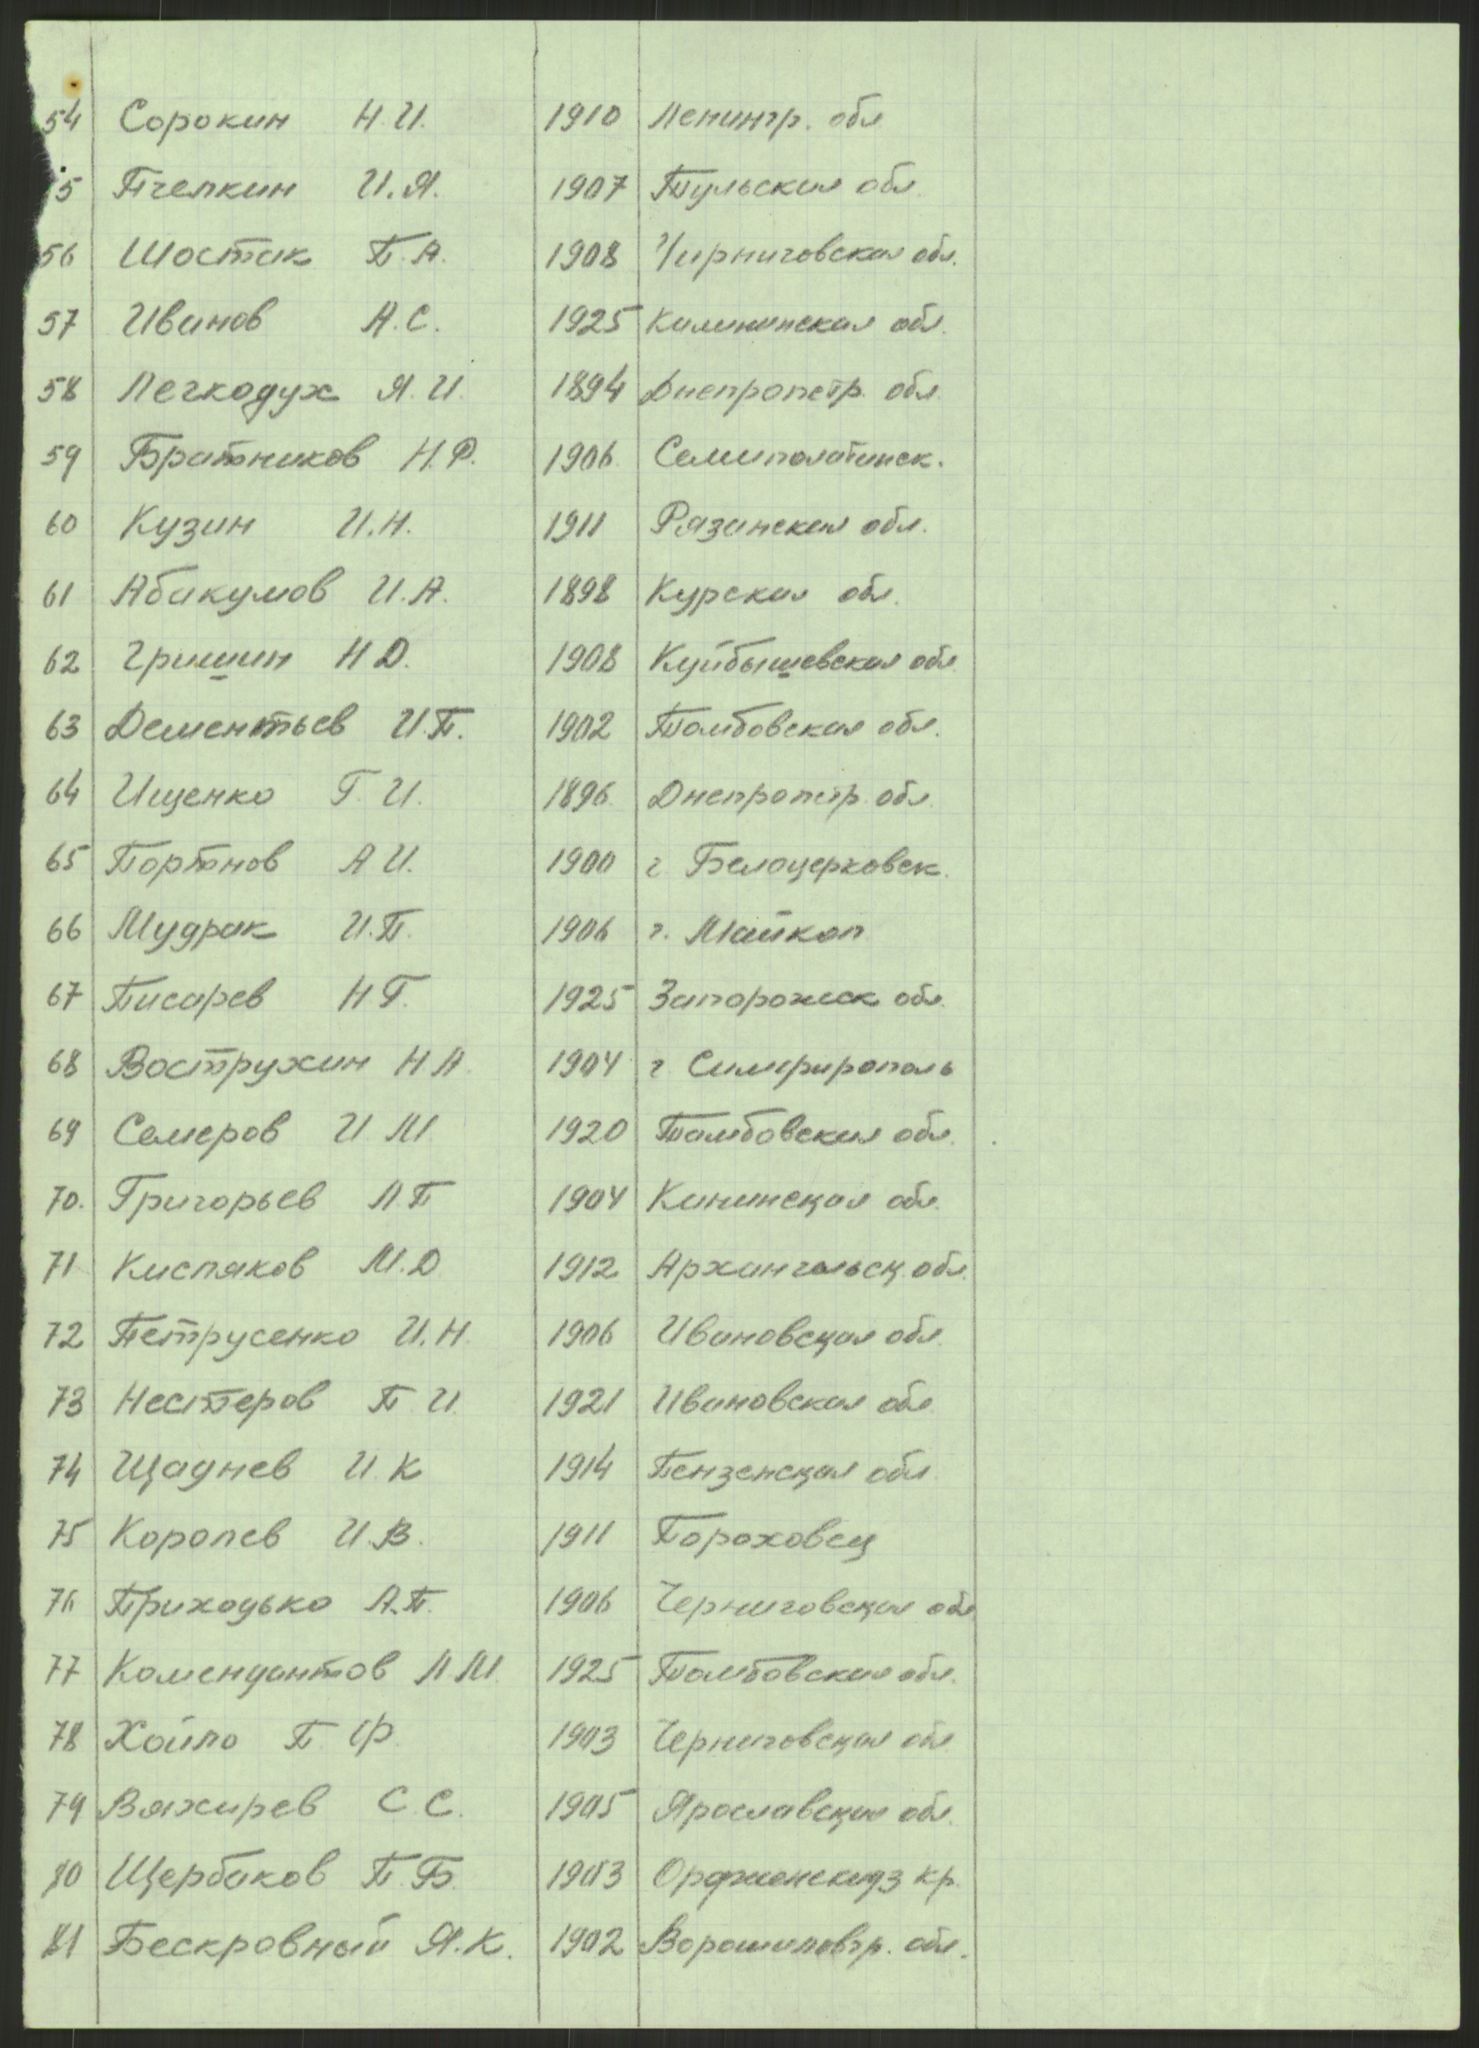 54 Сорокин Н.И. 1910 Ленингр. обл
5 Пчелкин И.Я. 1907 Тульская обл.
56 Шостак П.А. 1908 Чирниговская обл.
57 Иванов А.С. 1925 Калининская обл.
58 Легкодух Я.И. 1894 Днепропетр. обл.
59 Братников Н.Ф. 1906 Семипалатинск.
60 Кузин И.Н. 1911 Рязанская обл.
61 Абакумов И.А. 1898 Курская обл.
62 Гришин Н Д. 1908 Куйбышевская обл
63 Дементьев И.П. 1902 Тамбовская обл.
64 Ищенко Г. И. 1896 Днепропетр. обл.
65 Портнов А И. 1900 г Белоцерковск.
66 Мудрак И.П. 1906 г. Майкоп
67 Писарев Н Г. 1925 Запорожск обл.
68 Вострухин Н А. 1904 г. Симфирополь
69 Семеров И М 1920 Тамбовская обл.
70. Григорьев Л.П 1904 Кининская обл.
71 Кисляков М.Д 1912 Архангельск. обл.
72 Петрусенко И.Н. 1906 Ивановская обл.
73 Нестеров П И 1921 Ивановская обл
74 Щаднев И. К 1914 Пензенская обл.
75 Королев И.В. 1911 Гороховец
76 Приходько А.П. 1906 Черниговская обл
77 Комендантов Л М. 1925 Тамбовская обл.
78 Хойло П. Ф. 1903 Черниговская обл
79 Вяхирев С. С. 1905 Ярославская обл.
80 Щербаков П. Б. 1903 Орджонскидз кр.
81 Бескровный Я.К. 1902 Ворошиловгр. обл.